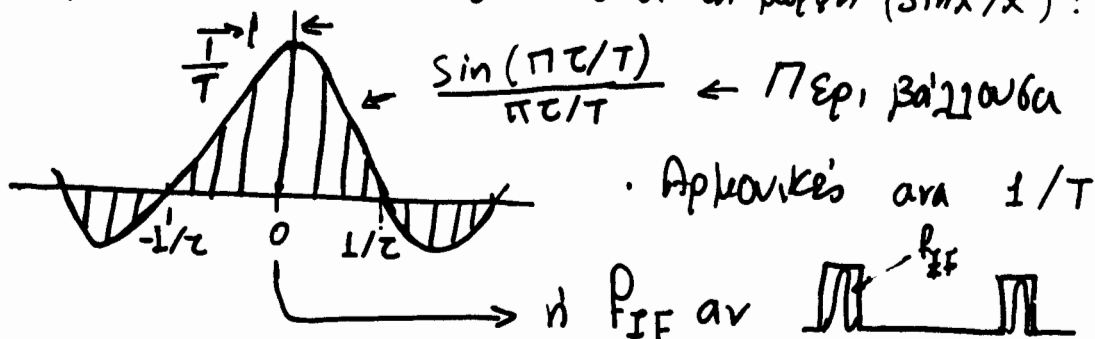 μορφή (sinx/x):
1/T
sin(πτ/T)/(πτ/T) ← Περιβάλλουσα
. Αρμονικές ανα 1/T
-1/τ 0 1/τ
ή f_IF αν f_IF